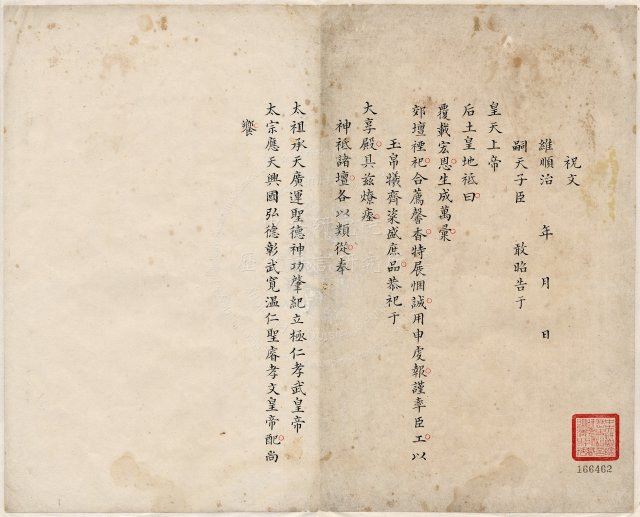 祝文
維順治 年 月 日
嗣天子臣 敢昭告于
皇天上帝
后土皇地祗曰
覆載宏恩生成萬彙
郊壇禋祀合薦馨香特展悃誠用申虔報謹率臣工以
玉帛犧齊粢盛庶品恭祀于
大享殿具茲燎瘞
神祗諸壇各以類從奉
太祖承天廣運聖德神功肇紀立極仁孝武皇帝
太宗應天興國弘德彰武寬溫仁聖睿孝文皇帝配尚
饗
166462